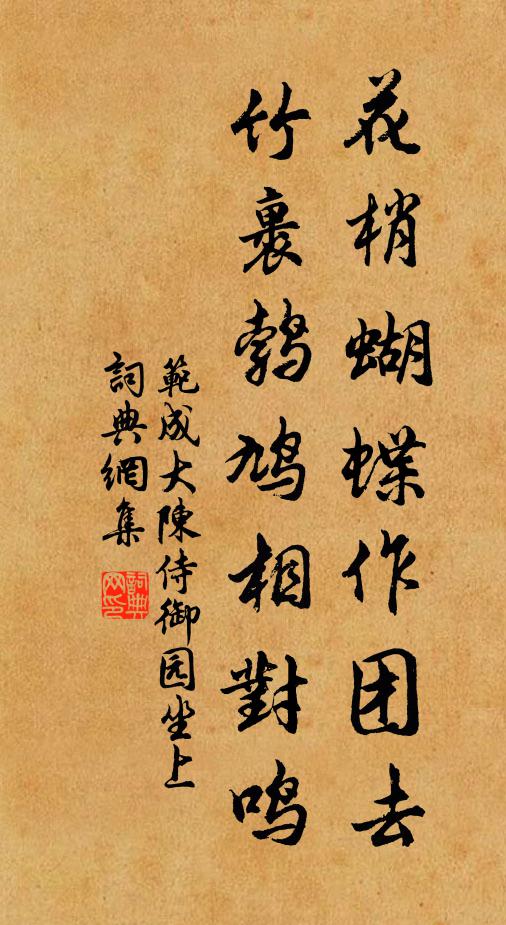 花梢蝴蝶作团去
竹裏鹁鸠相對鸣
範成大陳侍御园坐上
詞典網集
詞典網印